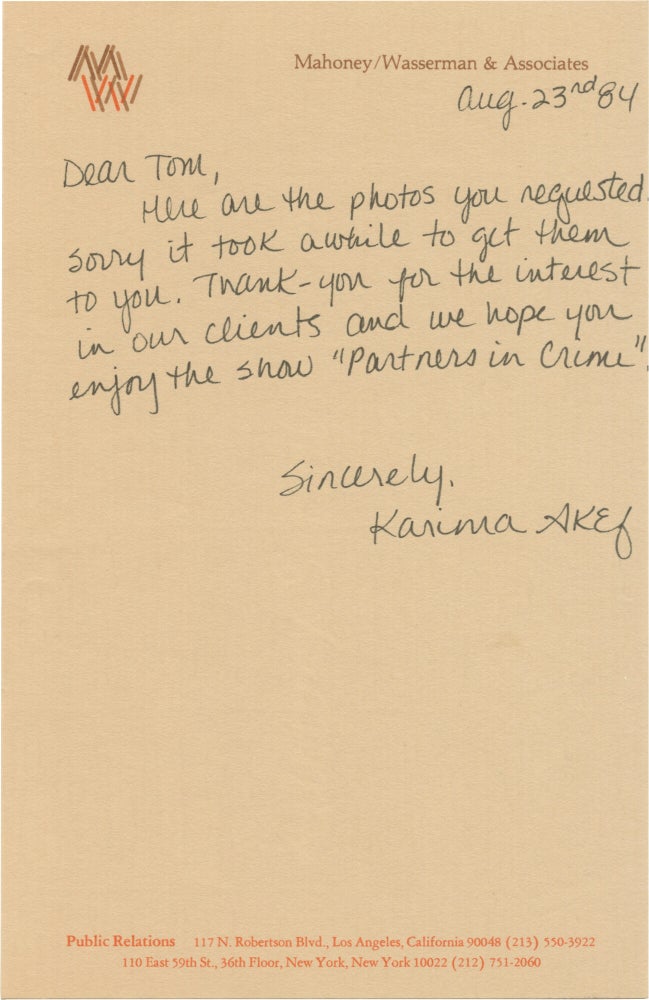 MW
Mahoney/Wasserman & Associates
Aug. 23rd 84
Dear Tom,
Here are the photos you requested.
Sorry it took awhile to get them
to you. Thank-you for the interest
in our clients and we hope you
enjoy the show "Partners in Crime".
Sincerely,
Karima Akef
Public Relations 117 N. Robertson Blvd., Los Angeles, California 90048 (213) 550-3922
110 East 59th St., 36th Floor, New York, New York 10022 (212) 751-2060